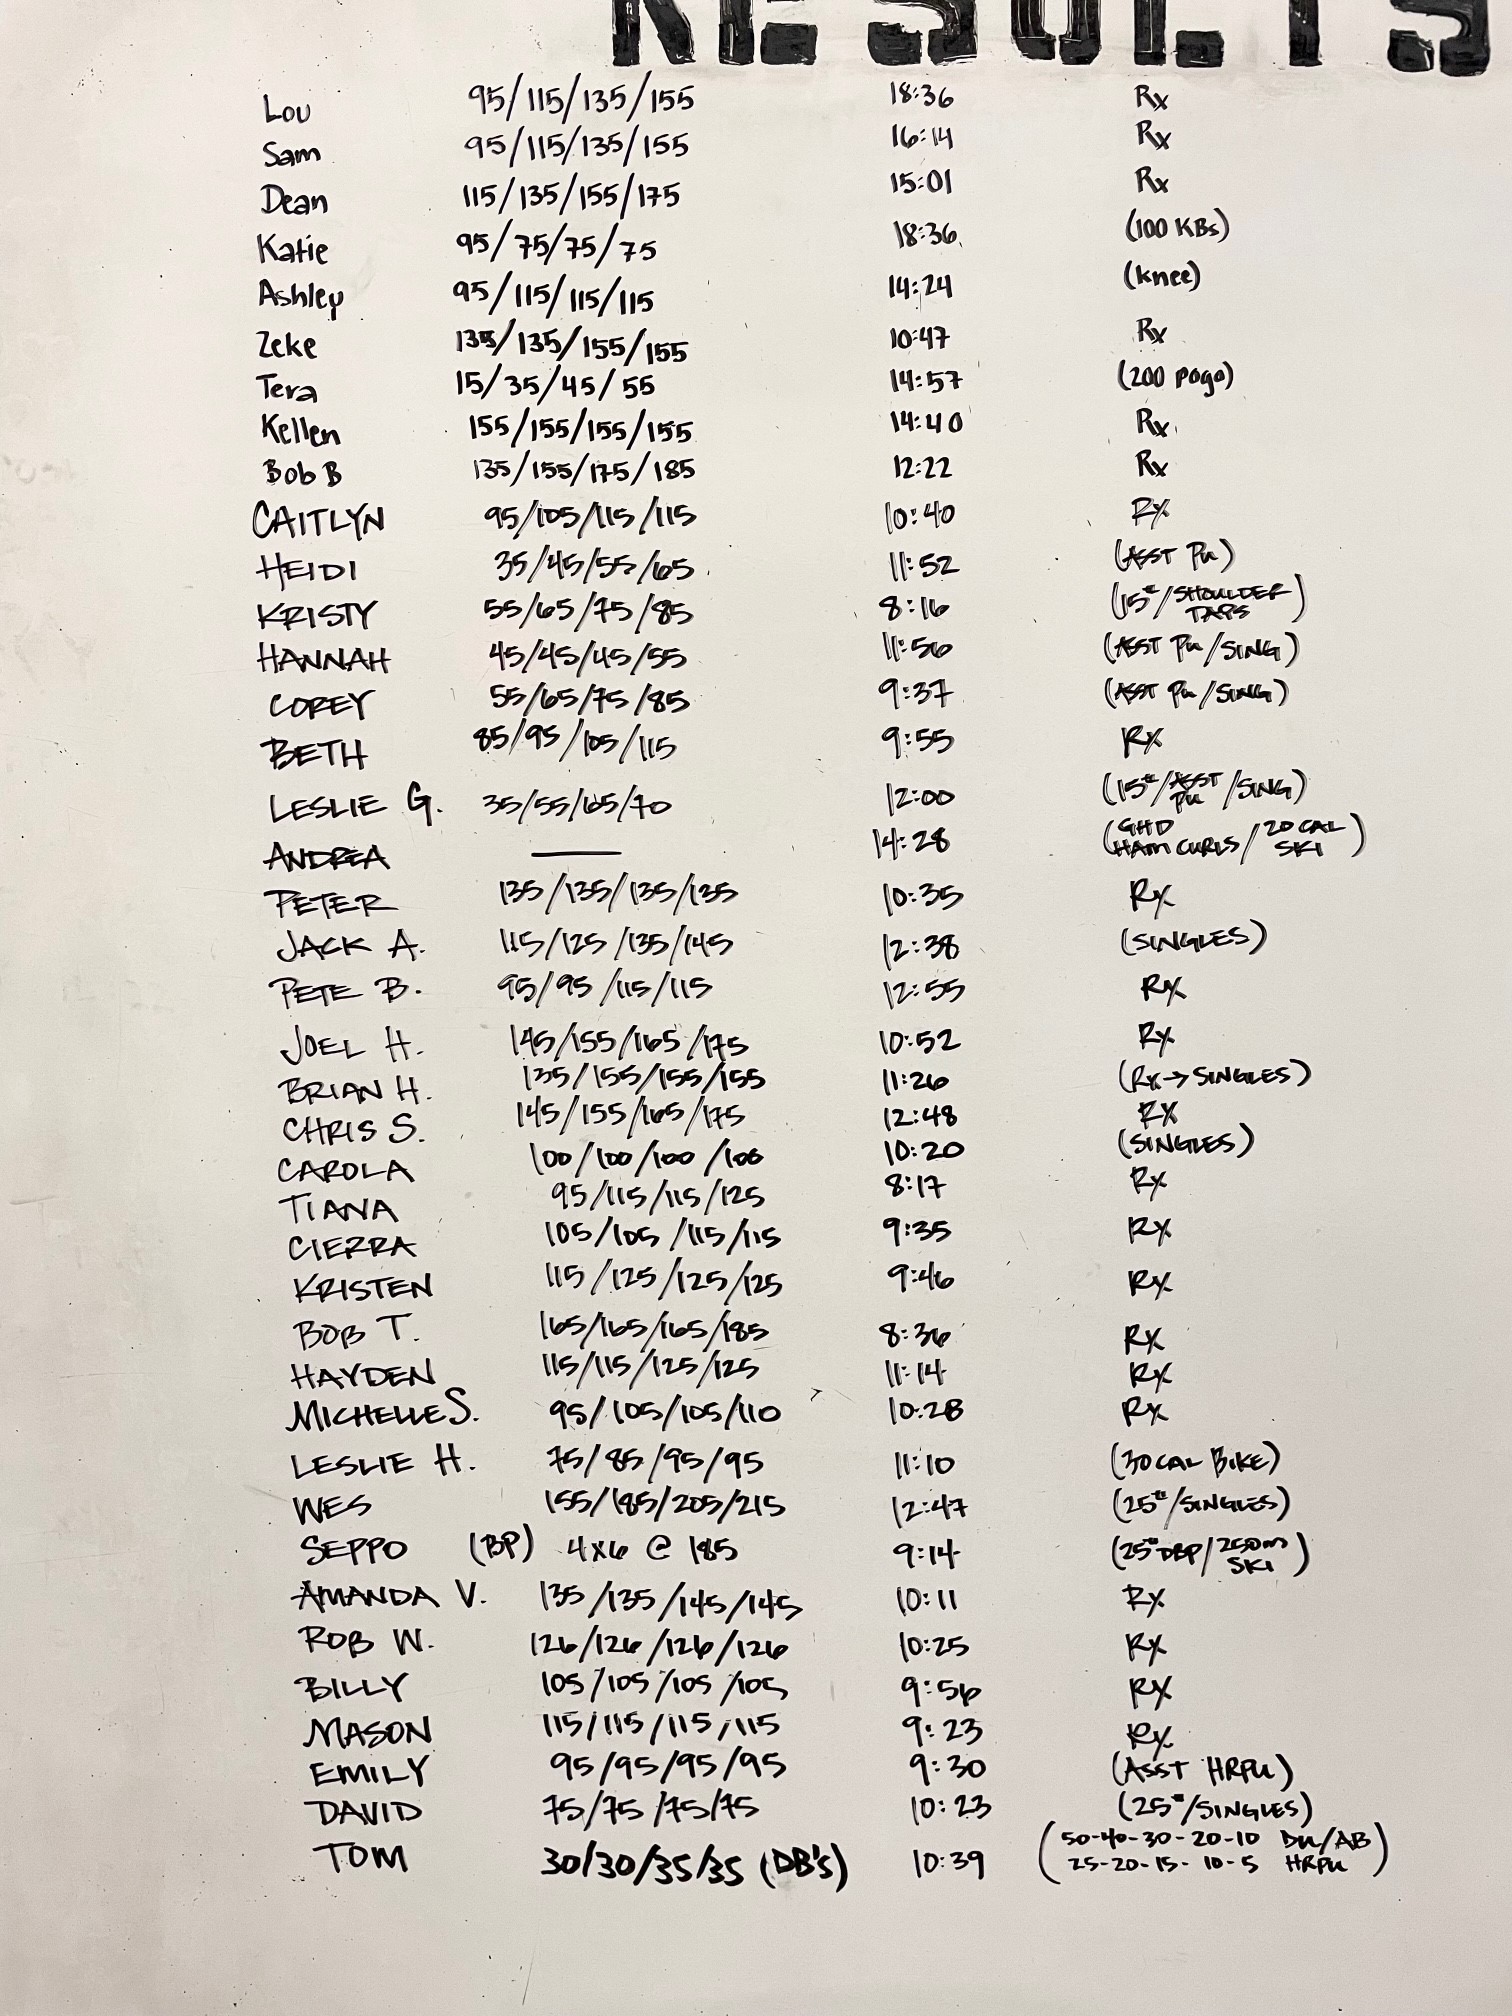 RESULTS
Lou 95/115/135/155 18:36 Rx
Sam 95/115/135/155 16:14 Rx
Dean 115/135/155/175 15:01 Rx
Katie 95/75/75/75 18:36 (100 KBs)
Ashley 95/115/115/115 14:24 (knee)
Zeke 135/135/155/155 10:47 Rx
Tera 15/35/45/55 14:57 (200 pogo)
Kellen 155/155/155/155 14:40 Rx
Bob B 135/155/175/185 12:22 Rx
CAITLYN 95/105/115/115 10:40 Rx
HEIDI 35/45/55/65 11:52 (ASST Pu)
KRISTY 55/65/75/85 8:16 (15#/SHOULDER TAPS)
HANNAH 45/45/45/55 11:56 (ASST Pu/SING)
COREY 55/65/75/85 9:37 (ASST Pu/SING)
BETH 85/95/105/115 9:55 RX
LESLIE G. 35/55/65/70 12:00 (15#/ASST Pu/SING)
ANDREA — 14:28 (GHD HAM CURLS/20 CAL SKI)
PETER 135/135/135/135 10:35 Rx
JACK A. 115/125/135/145 12:38 (SINGLES)
PETE B. 95/95/115/115 12:55 RX
JOEL H. 145/155/165/175 10:52 Rx
BRIAN H. 135/155/155/155 11:26 (Rx→SINGLES)
CHRIS S. 145/155/165/175 12:48 RX
CAROLA 100/100/100/100 10:20 (SINGLES)
TIANA 95/115/115/125 8:17 Rx
CIERRA 105/105/115/115 9:35 RX
KRISTEN 115/125/125/125 9:46 RX
BOB T. 165/165/165/185 8:36 RX
HAYDEN 115/115/125/125 11:14 RX
MICHELLE S. 95/105/105/110 10:28 RX
LESLIE H. 75/85/95/95 11:10 (30 CAL BIKE)
WES 155/185/205/215 12:47 (25#/SINGLES)
SEPPO (BP) 4x6 @ 185 9:14 (25# DBP/250m SKI)
AMANDA V. 135/135/145/145 10:11 RX
ROB W. 126/126/126/126 10:25 RX
BILLY 105/105/105/105 9:56 RX
MASON 115/115/115/115 9:23 Rx
EMILY 95/95/95/95 9:30 (ASST HRPu)
DAVID 75/75/75/75 10:23 (25#/SINGLES)
TOM 30/30/35/35 (DB's) 10:39 (50-40-30-20-10 Du/AB
25-20-15-10-5 HRPu)